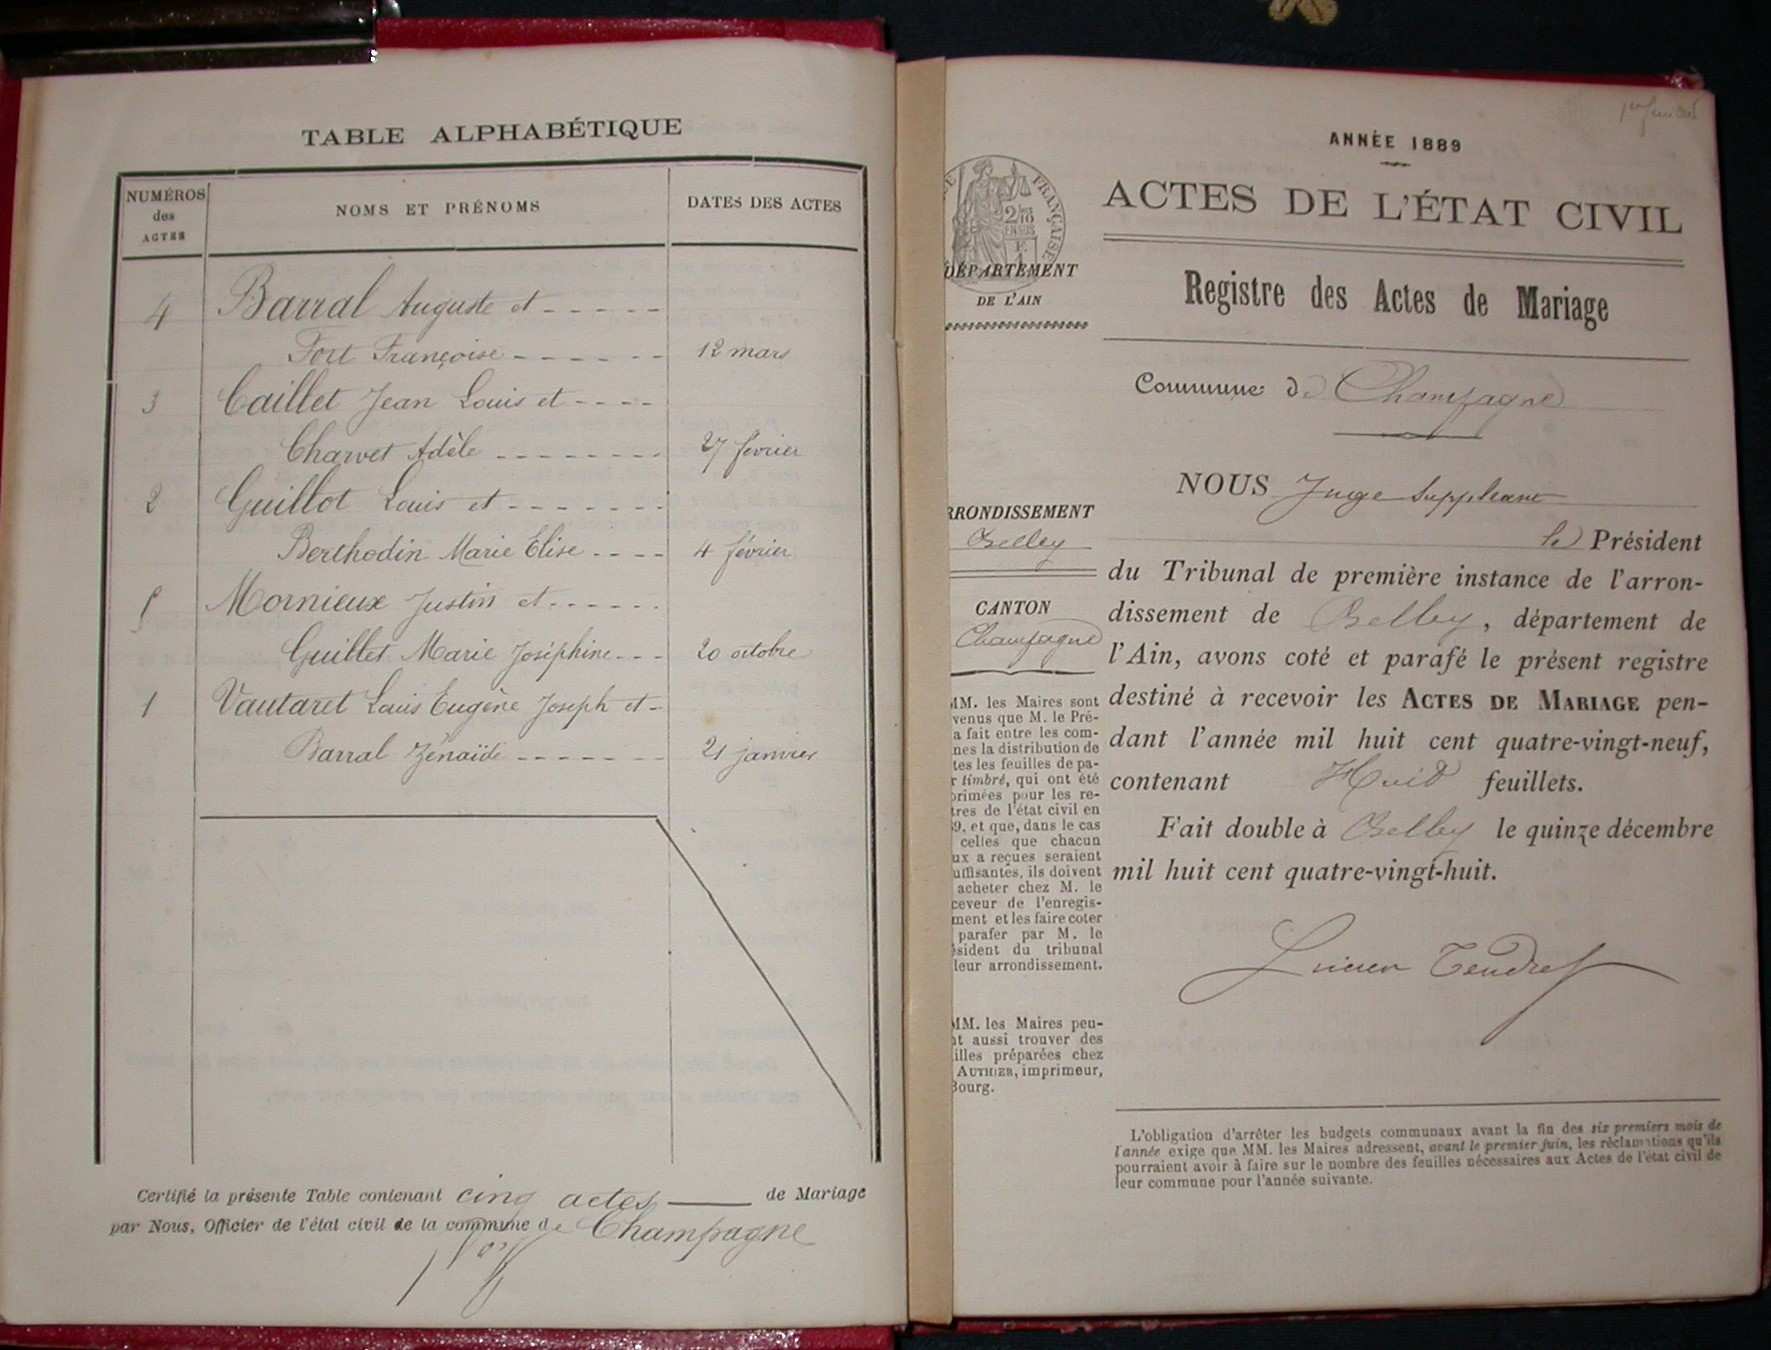 TABLE ALPHABÉTIQUE
NUMÉROS
des
ACTES
NOMS ET PRÉNOMS
DATES DES ACTES
4 Barral Auguste et
Fort Françoise 12 mars
3 Caillet Jean Louis et
Charvet Adèle 27 février
2 Guillot Louis et
Berthodin Marie Elise 4 février
5 Mornieux Justin et
Guillet Marie Joséphine 20 octobre
1 Vautaret Louis Eugène Joseph et
Barral Zénaïde 21 janvier
Certifié la présente Table contenant cinq actes de Mariage
par Nous, Officier de l'état civil de la commune de Champagne
ANNÉE 1889
ACTES DE L'ÉTAT CIVIL
FRANÇAISE
DÉPARTEMENT
DE L'AIN
Registre des Actes de Mariage
Commune de Champagne
NOUS Juge Suppléant
le Président
du Tribunal de première instance de l'arron-
dissement de Belley, département de
l'Ain, avons coté et parafé le présent registre
destiné à recevoir les ACTES DE MARIAGE pen-
dant l'année mil huit cent quatre-vingt-neuf,
contenant Huit feuillets.
Fait double à Belley le quinze décembre
mil huit cent quatre-vingt-huit.
Lucien Tendret
RRONDISSEMENT
Belley
CANTON
Champagne
MM. les Maires sont
venus que M. le Pré-
a fait entre les com-
nes la distribution de
tes les feuilles de pa-
r timbré, qui ont été
primées pour les re-
tres de l'état civil en
9, et que, dans le cas
celles que chacun
ux a reçues seraient
uffisantes, ils doivent
acheter chez M. le
ceveur de l'enregis-
ment et les faire coter
parafer par M. le
ésident du tribunal
leur arrondissement.
MM. les Maires peu-
nt aussi trouver des
illes préparées chez
AUTHIER, imprimeur,
Bourg.
L'obligation d'arrêter les budgets communaux avant la fin des six premiers mois de
l'année exige que MM. les Maires adressent, avant le premier juin, les réclamations qu'ils
pourraient avoir à faire sur le nombre des feuilles nécessaires aux Actes de l'état civil de
leur commune pour l'année suivante.